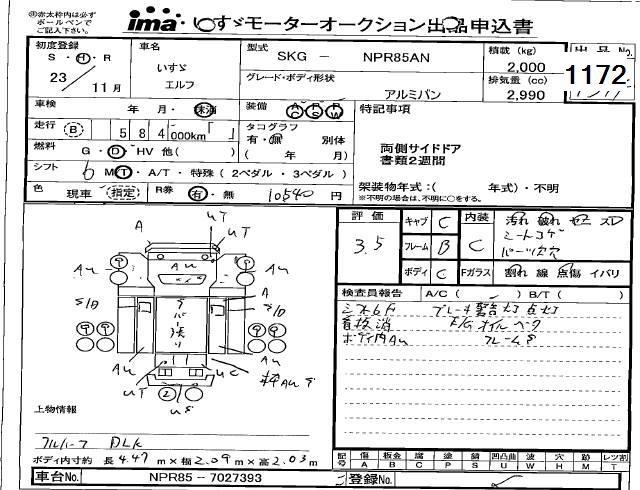 ㊟赤太枠内は必ず
ボールペンで
ご記入下さい。
ima いすゞモーターオークション出品申込書
初度登録 S・H・R 23 11月
車名 いすゞ エルフ
型式 SKG － NPR85AN
グレード・ボディ形状 アルミバン
積載 (kg) 2,000
排気量 (cc) 2,990
出品No.
1172
車検 年 月・抹消
装備 AC PS PW
特記事項
両側サイドドア
書類2週間
走行 B 584,000km
タコグラフ 有・無 別体
( 年 月)
燃料 G・D・HV 他( )
シフト 6 MT・A/T・特殊(2ペダル・3ペダル)
架装物年式：( 年式)・不明
※不明の場合は、不明に○をする。
色 現車 (指定) R券 有・無 10540 円
評価 3.5
キャブ C
フレーム B
ボディ C
内装 C
汚れ 破れ セニ ズレ
シートコゲ
Fガラス 割れ 線 点傷 イバリ
検査員報告 A/C( ) B/T( )
ブレーキ警告灯 点灯
オイル
ボディ内AU
UT
UT
A
AU
AU
AU
A
AU
AU
UT
UC
2
上物情報
DLK
ボディ内寸約 長 4.47 m×幅 2.09 m×高 2.03 m
記号 傷A 板金B 腐C 塗P 錆S 凹凸曲U 波W 穴H 跡M レツ割T
車台No. NPR85－7027393
登録No.